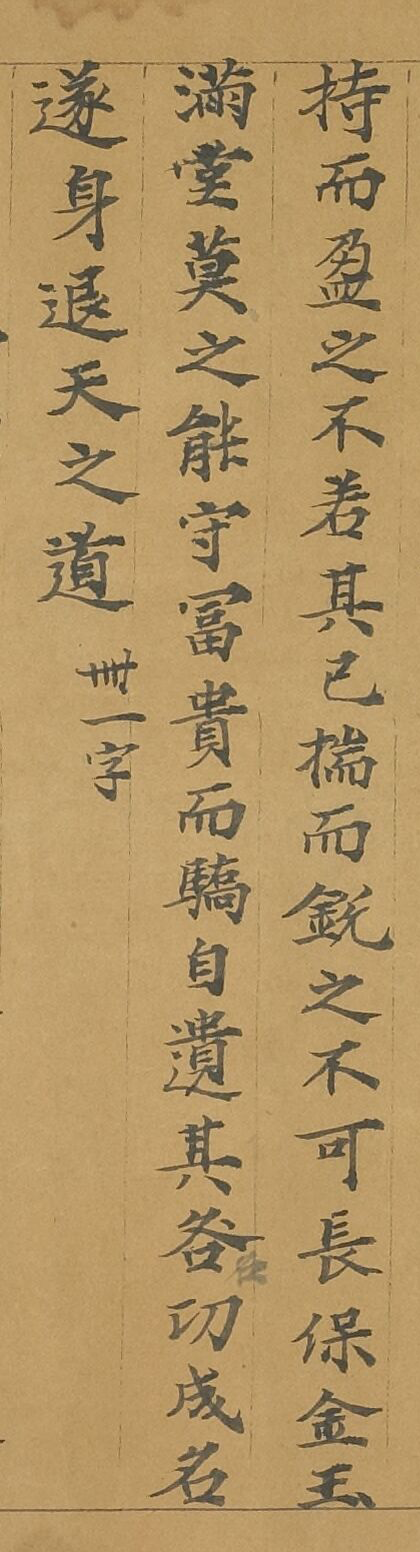 持而盈之不若其已揣而銳之不可長保金玉
滿堂莫之能守冨貴而驕自遺其咎功成名
遂身退天之道 卌一字